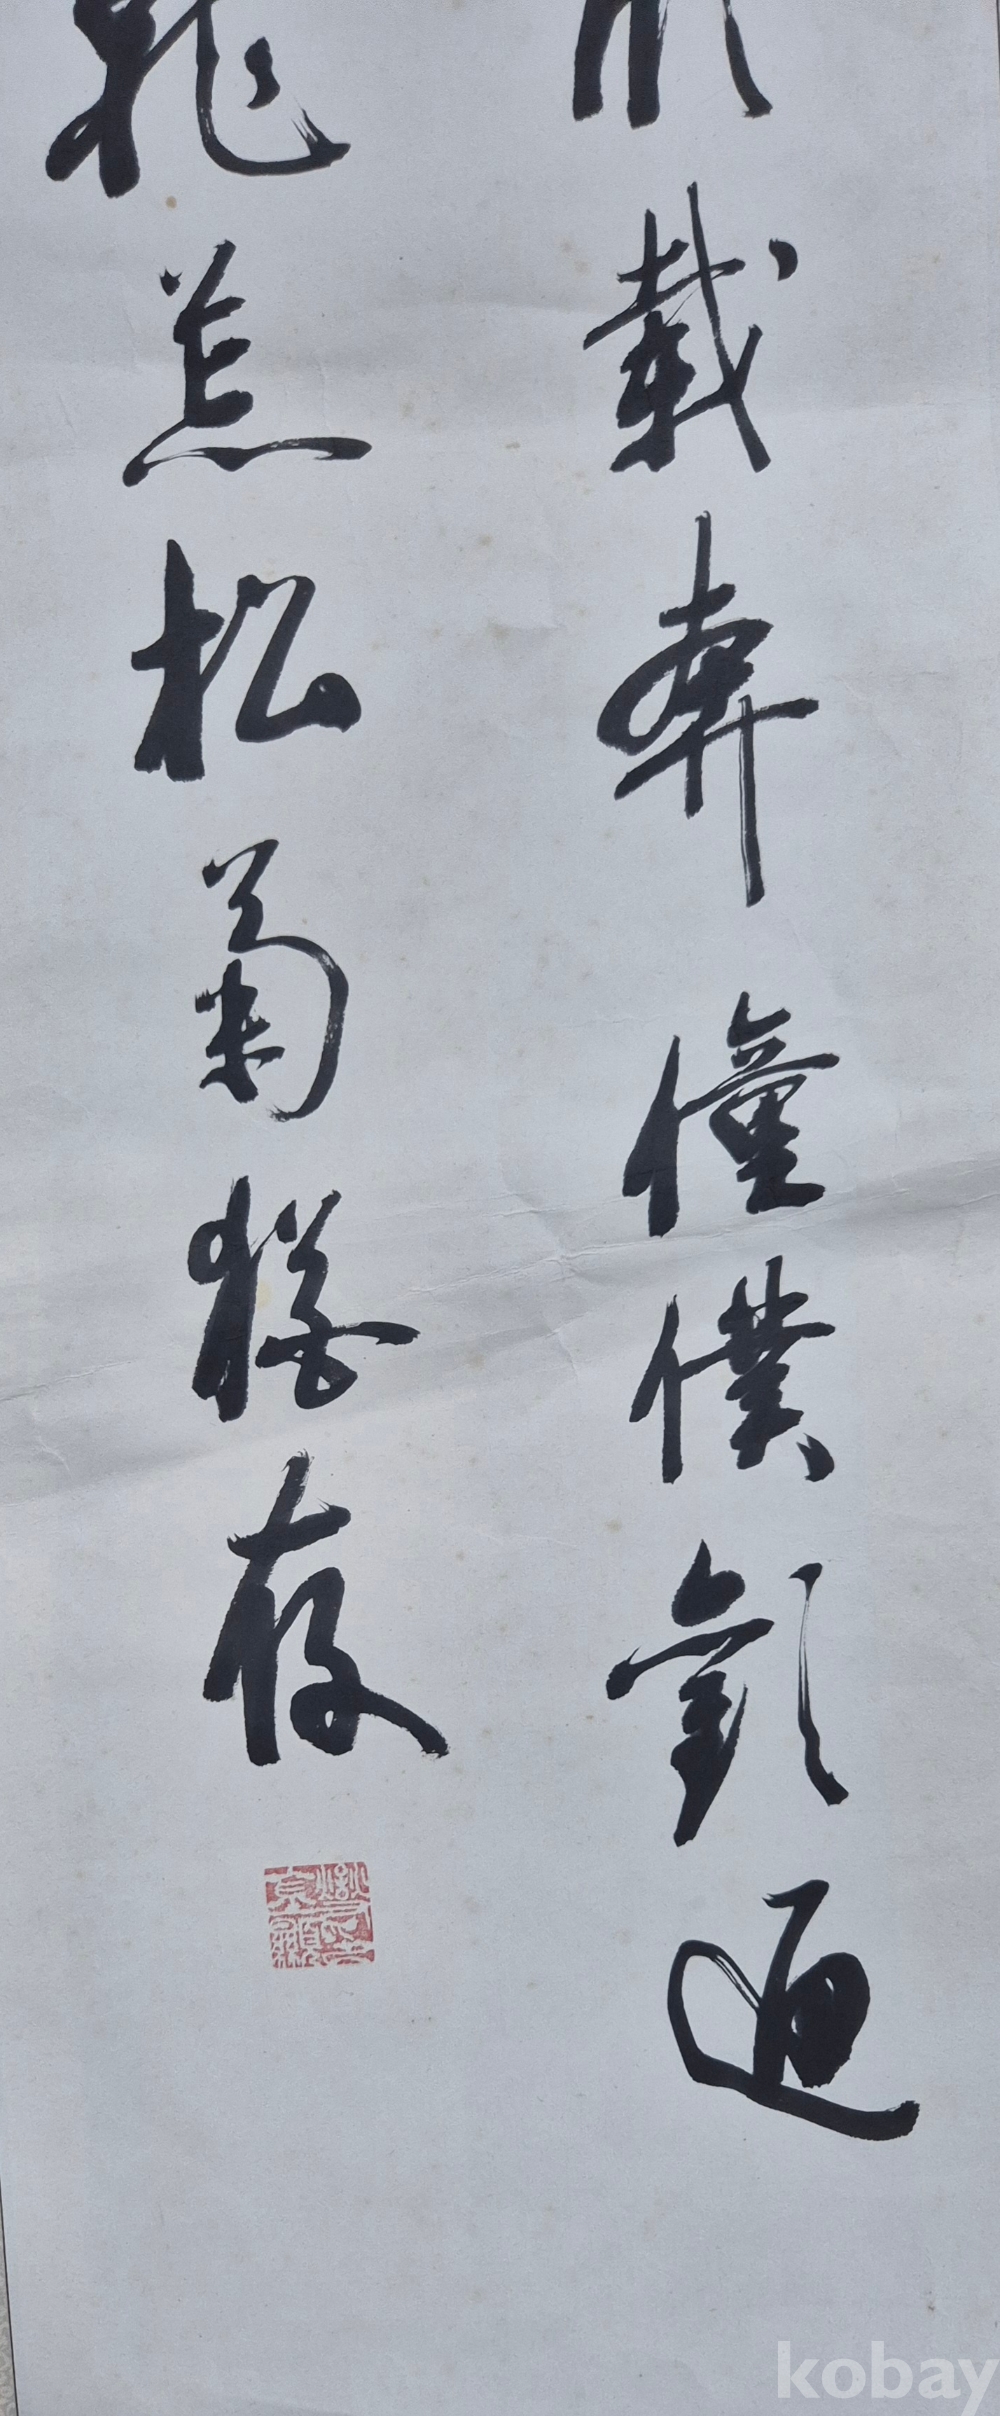 載奔僮僕歡迎
就荒松菊猶存
kobay